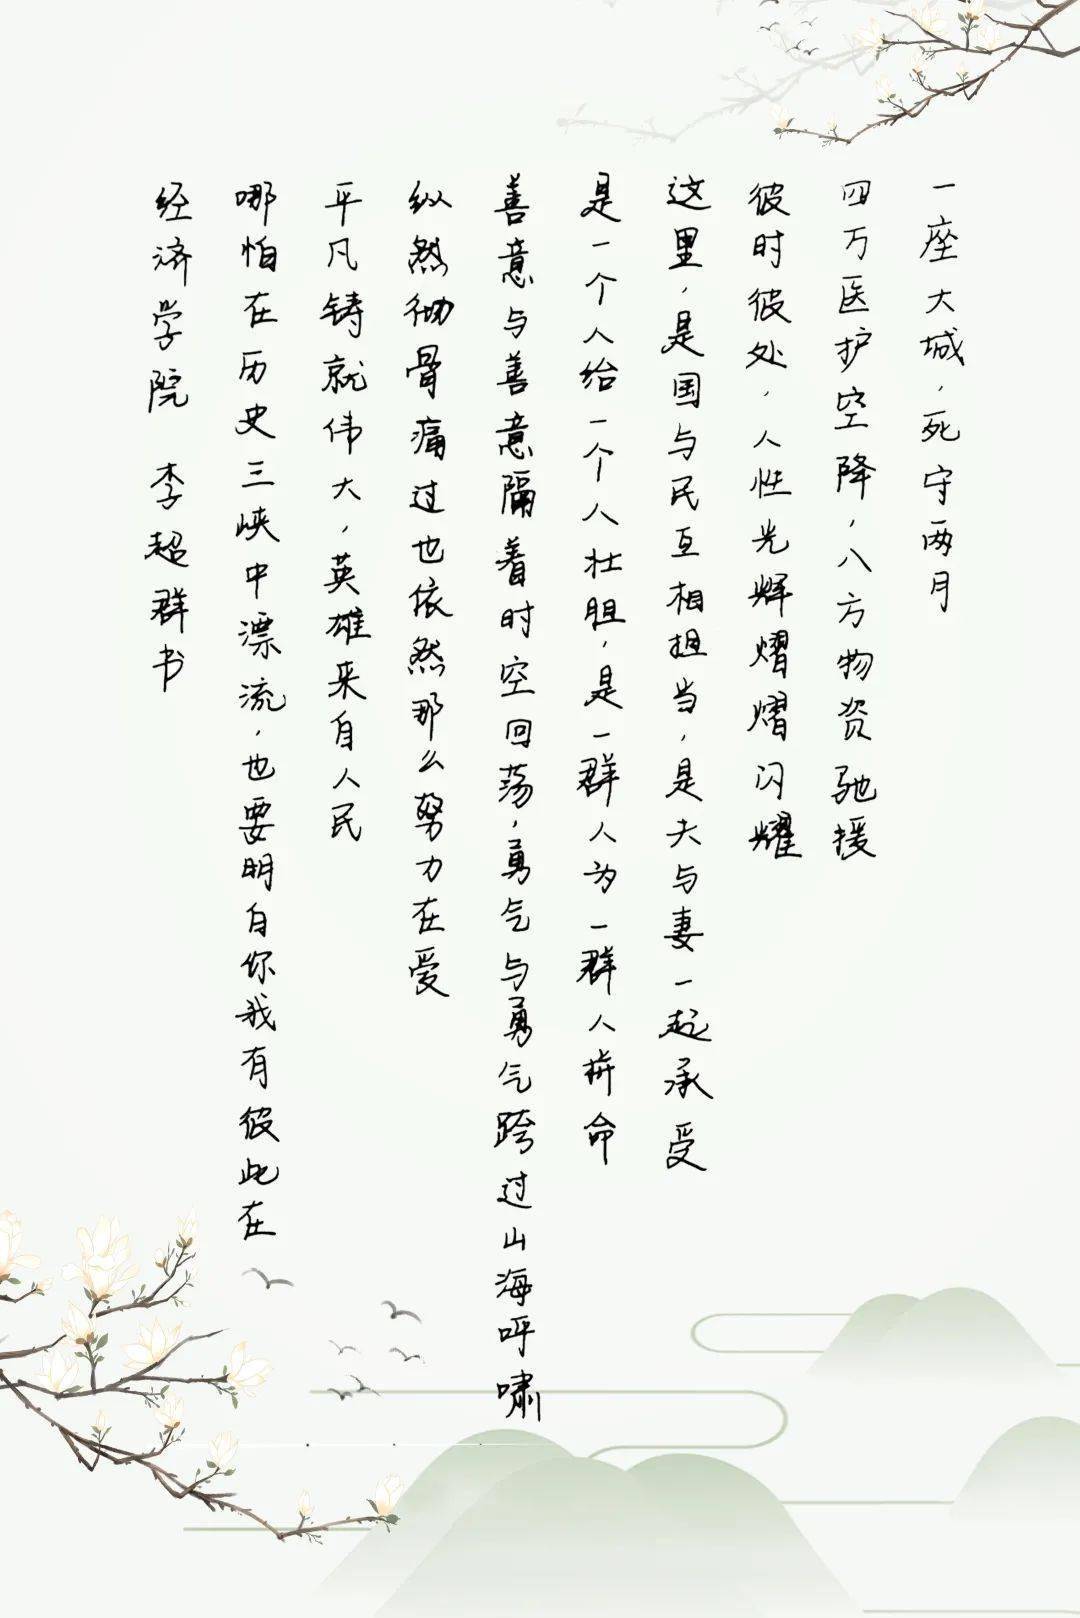 一座大城，死守两月
四万医护空降，八方物资驰援
彼时彼处，人性光辉熠熠闪耀
这里，是国与民互相担当，是夫与妻一起承受
是一个人给一个人壮胆，是一群人为一群人拼命
善意与善意隔着时空回荡，勇气与勇气跨过山海呼啸
纵然彻骨痛过也依然那么努力在爱
平凡铸就伟大，英雄来自人民
哪怕在历史三峡中漂流，也要明白你我有彼此在
经济学院 李超群书